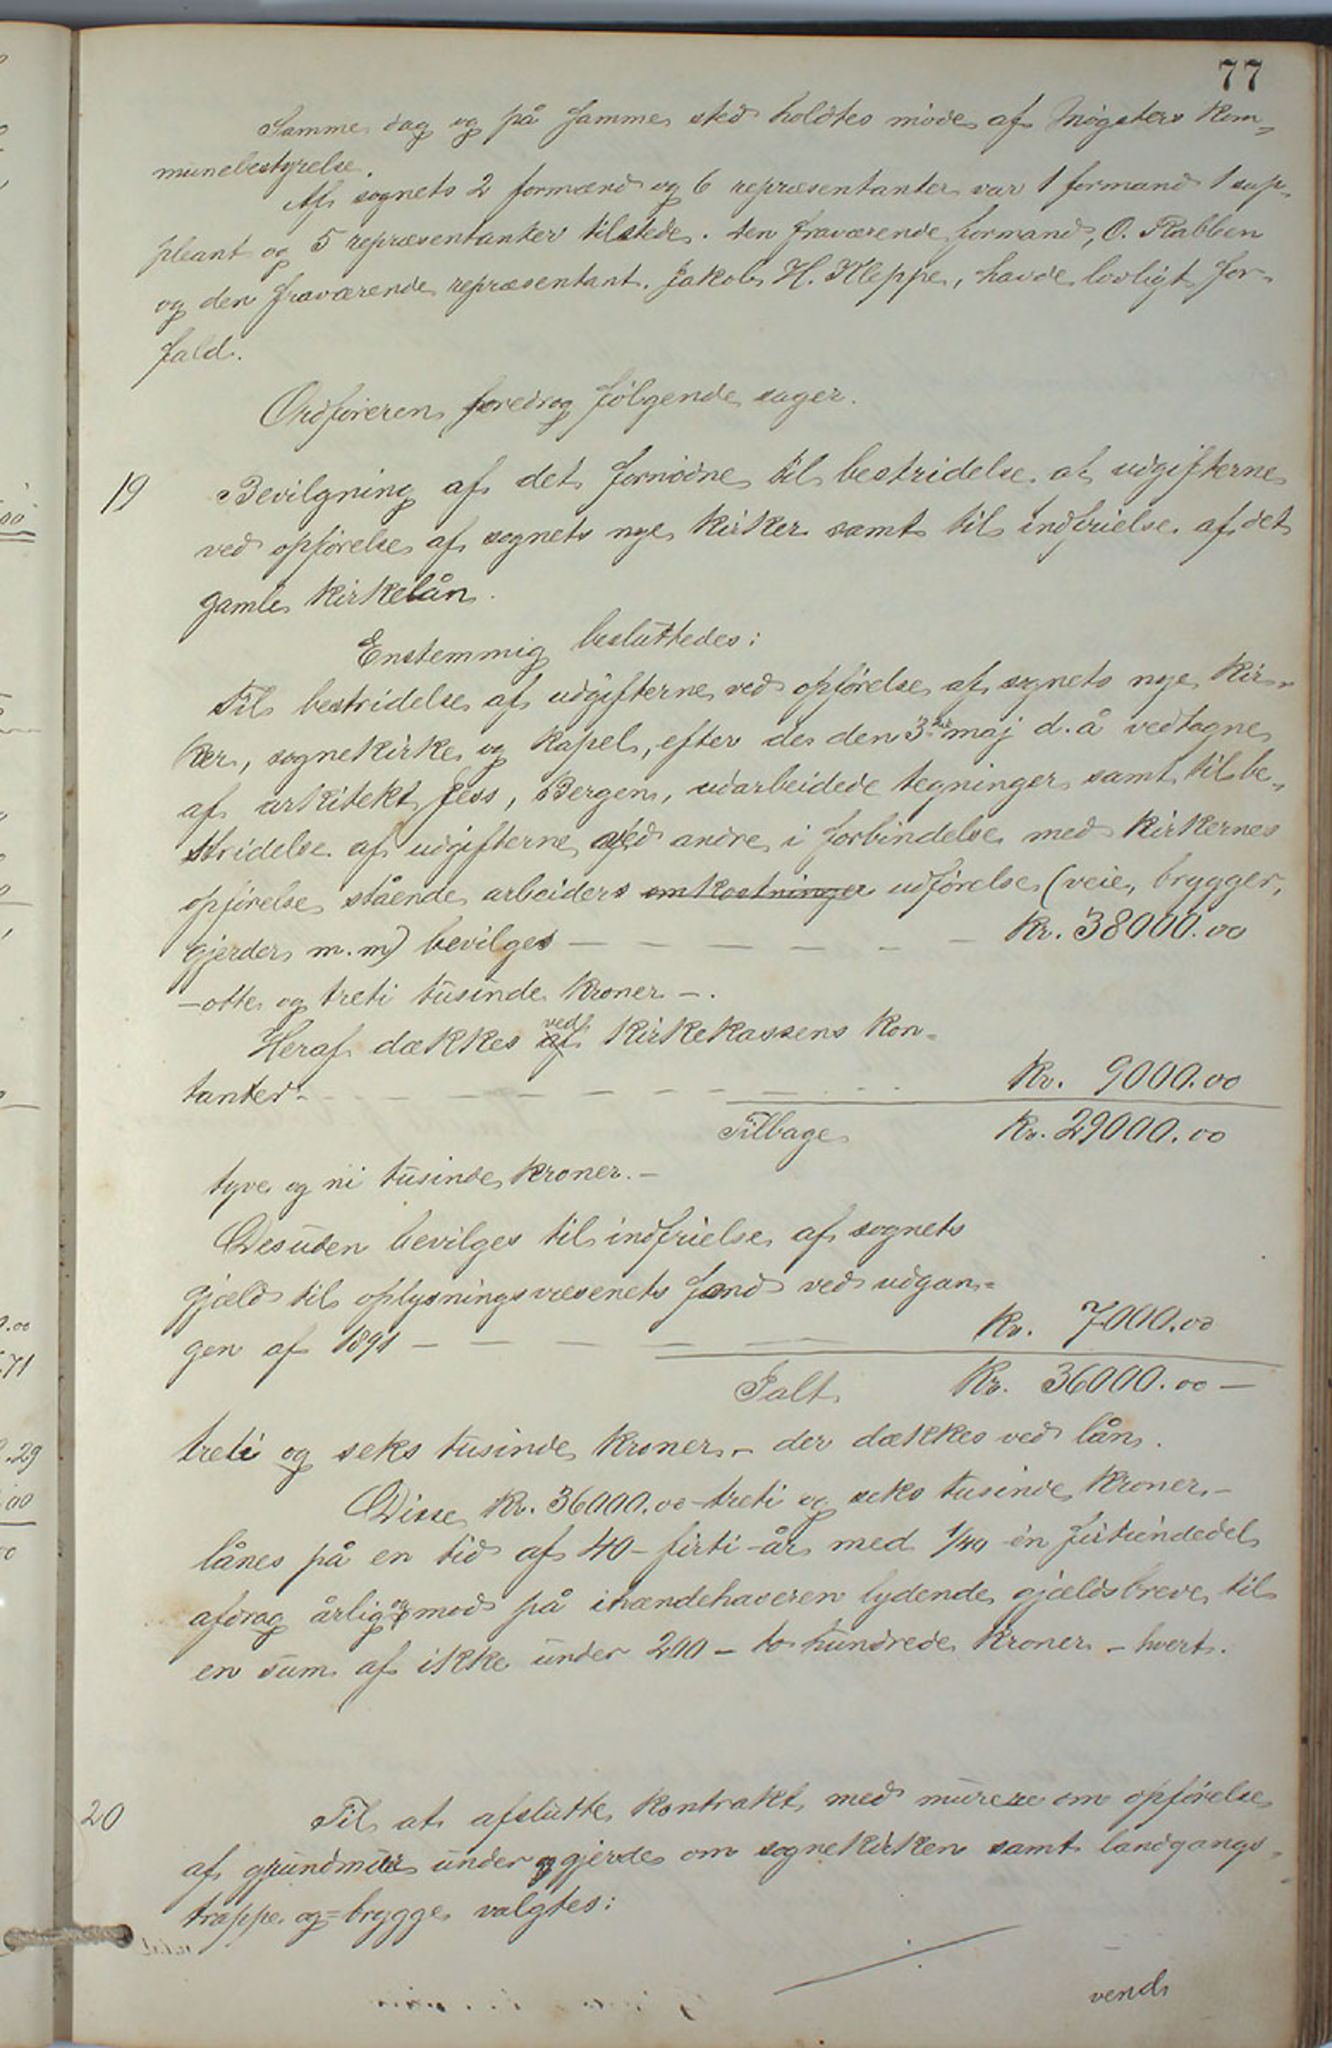 77
Samme dag og på samme sted holdtes møde af Møgsters kom-
munebestyrelse.
Af sognets 2 formænd og 6 repræsentanter var 1 formand 1 sup-
pleant og 5 repræsentanter tilstede. Den fraværende formand, O. Rabben
og den fraværende repræsentant Jakob H. Kleppe, havde lovligt for-
fald.
Ordføreren foredrog følgende sager.
19 Bevilgning af det fornødne til bestridelse af udgifterne
ved opførelse af sognets nye kirker samt til indfrielse af det
gamle kirkelån.
Enstemmig besluttedes:
Til bestridelse af udgifterne ved opførelse af sognets nye kir-
ker, sognekirke og kapel, efter de den 3die maj d.å vedtagne
af arkitekt Jess, Bergen, udarbeidede tegninger samt til be-
stridelse af udgifterne ved andre i forbindelse med kirkernes
opførelse stående arbeiders omkostninger udførelse (veie, brygger,
gjerder m.m) bevilges — — — — — — — Kr. 38000.00
—otte og treti tusinde kroner —.
Heraf dækkes af ved kirkekassens kon-
tanter — — — — — — — Kr. 9000.00
Tilbage Kr. 29000.00
tyve og ni tusinde kroner. —
Desuden bevilges til indfrielse af sognets
gjæld til oplysningsvæsenets fond ved udgan-
gen af 1891 — — — — — — Kr. 7000.00
Ialt Kr. 36000.00 —
treti og seks tusinde kroner — der dækkes ved lån.
Disse Kr. 36000.00 treti og seks tusinde kroner —
lånes på en tid af 40 – firti – år med 1/40 én firtiendedel
afdrag årlig og mod på ihændehaveren lydende gjældsbreve til
en sum af ikke under 200 – to hundrede kroner – hvert.
20 Til at afslutte kontrakt med murere om opførelse
af grundmur under og gjerde om sognekirken samt landgangs-
trappe og =brygge valgtes:
vend